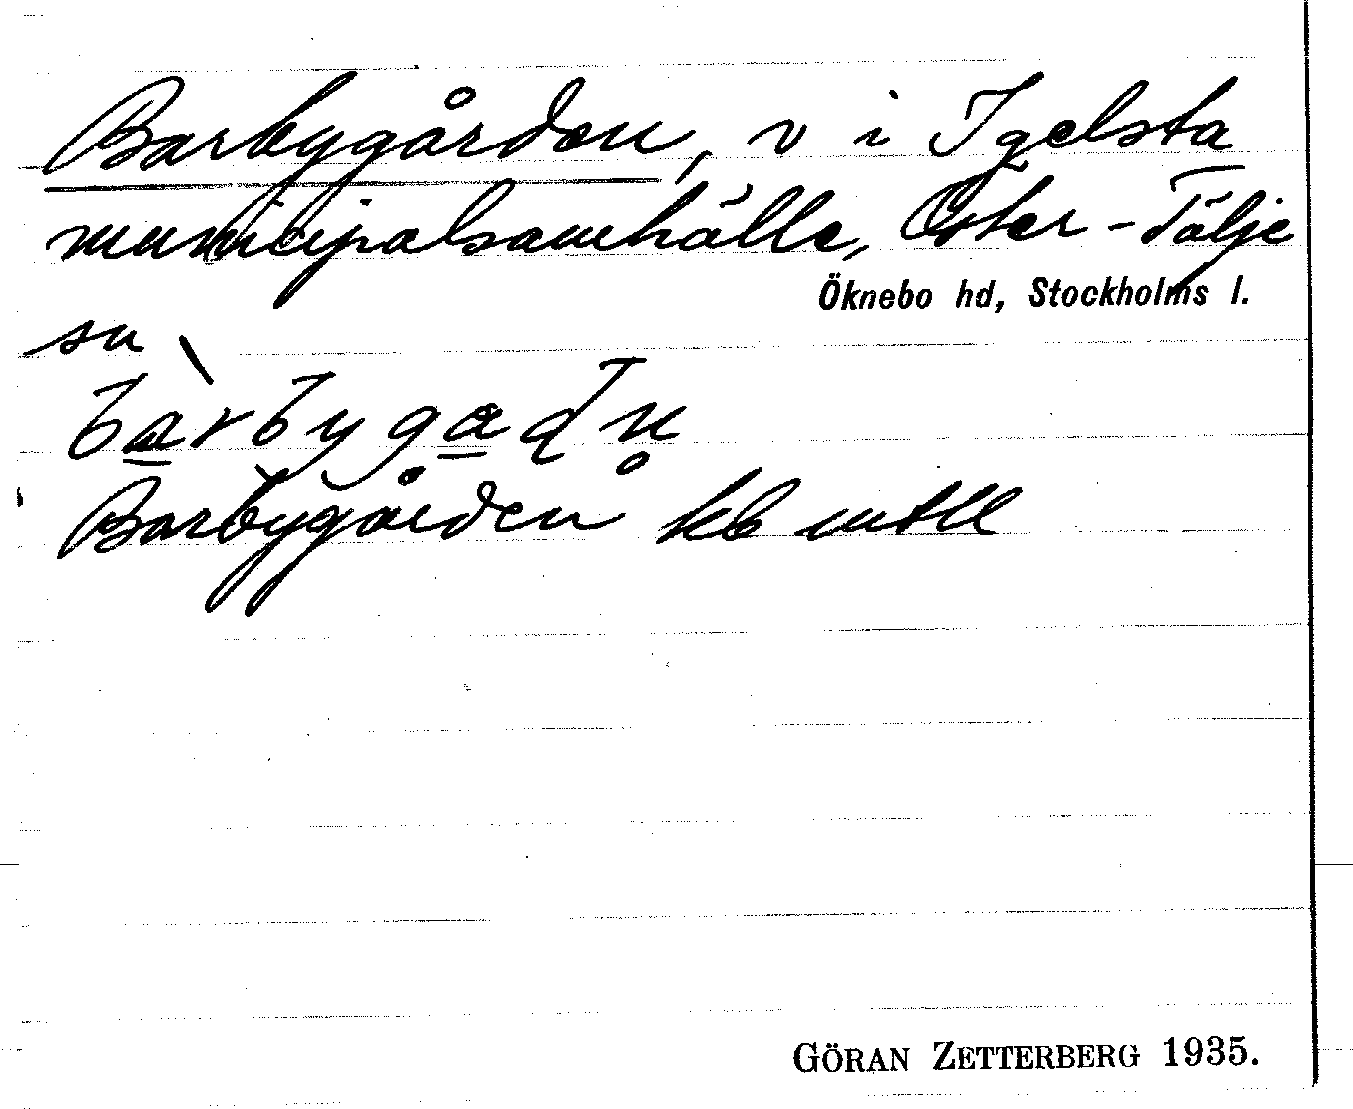 Barbygården, v i Igelsta
municipalsamhälle, Öster-Tälje
Öknebo hd, Stockholms l.
su
bàrbygadn̥
Barbygården kb mtll
GÖRAN ZETTERBERG 1935.